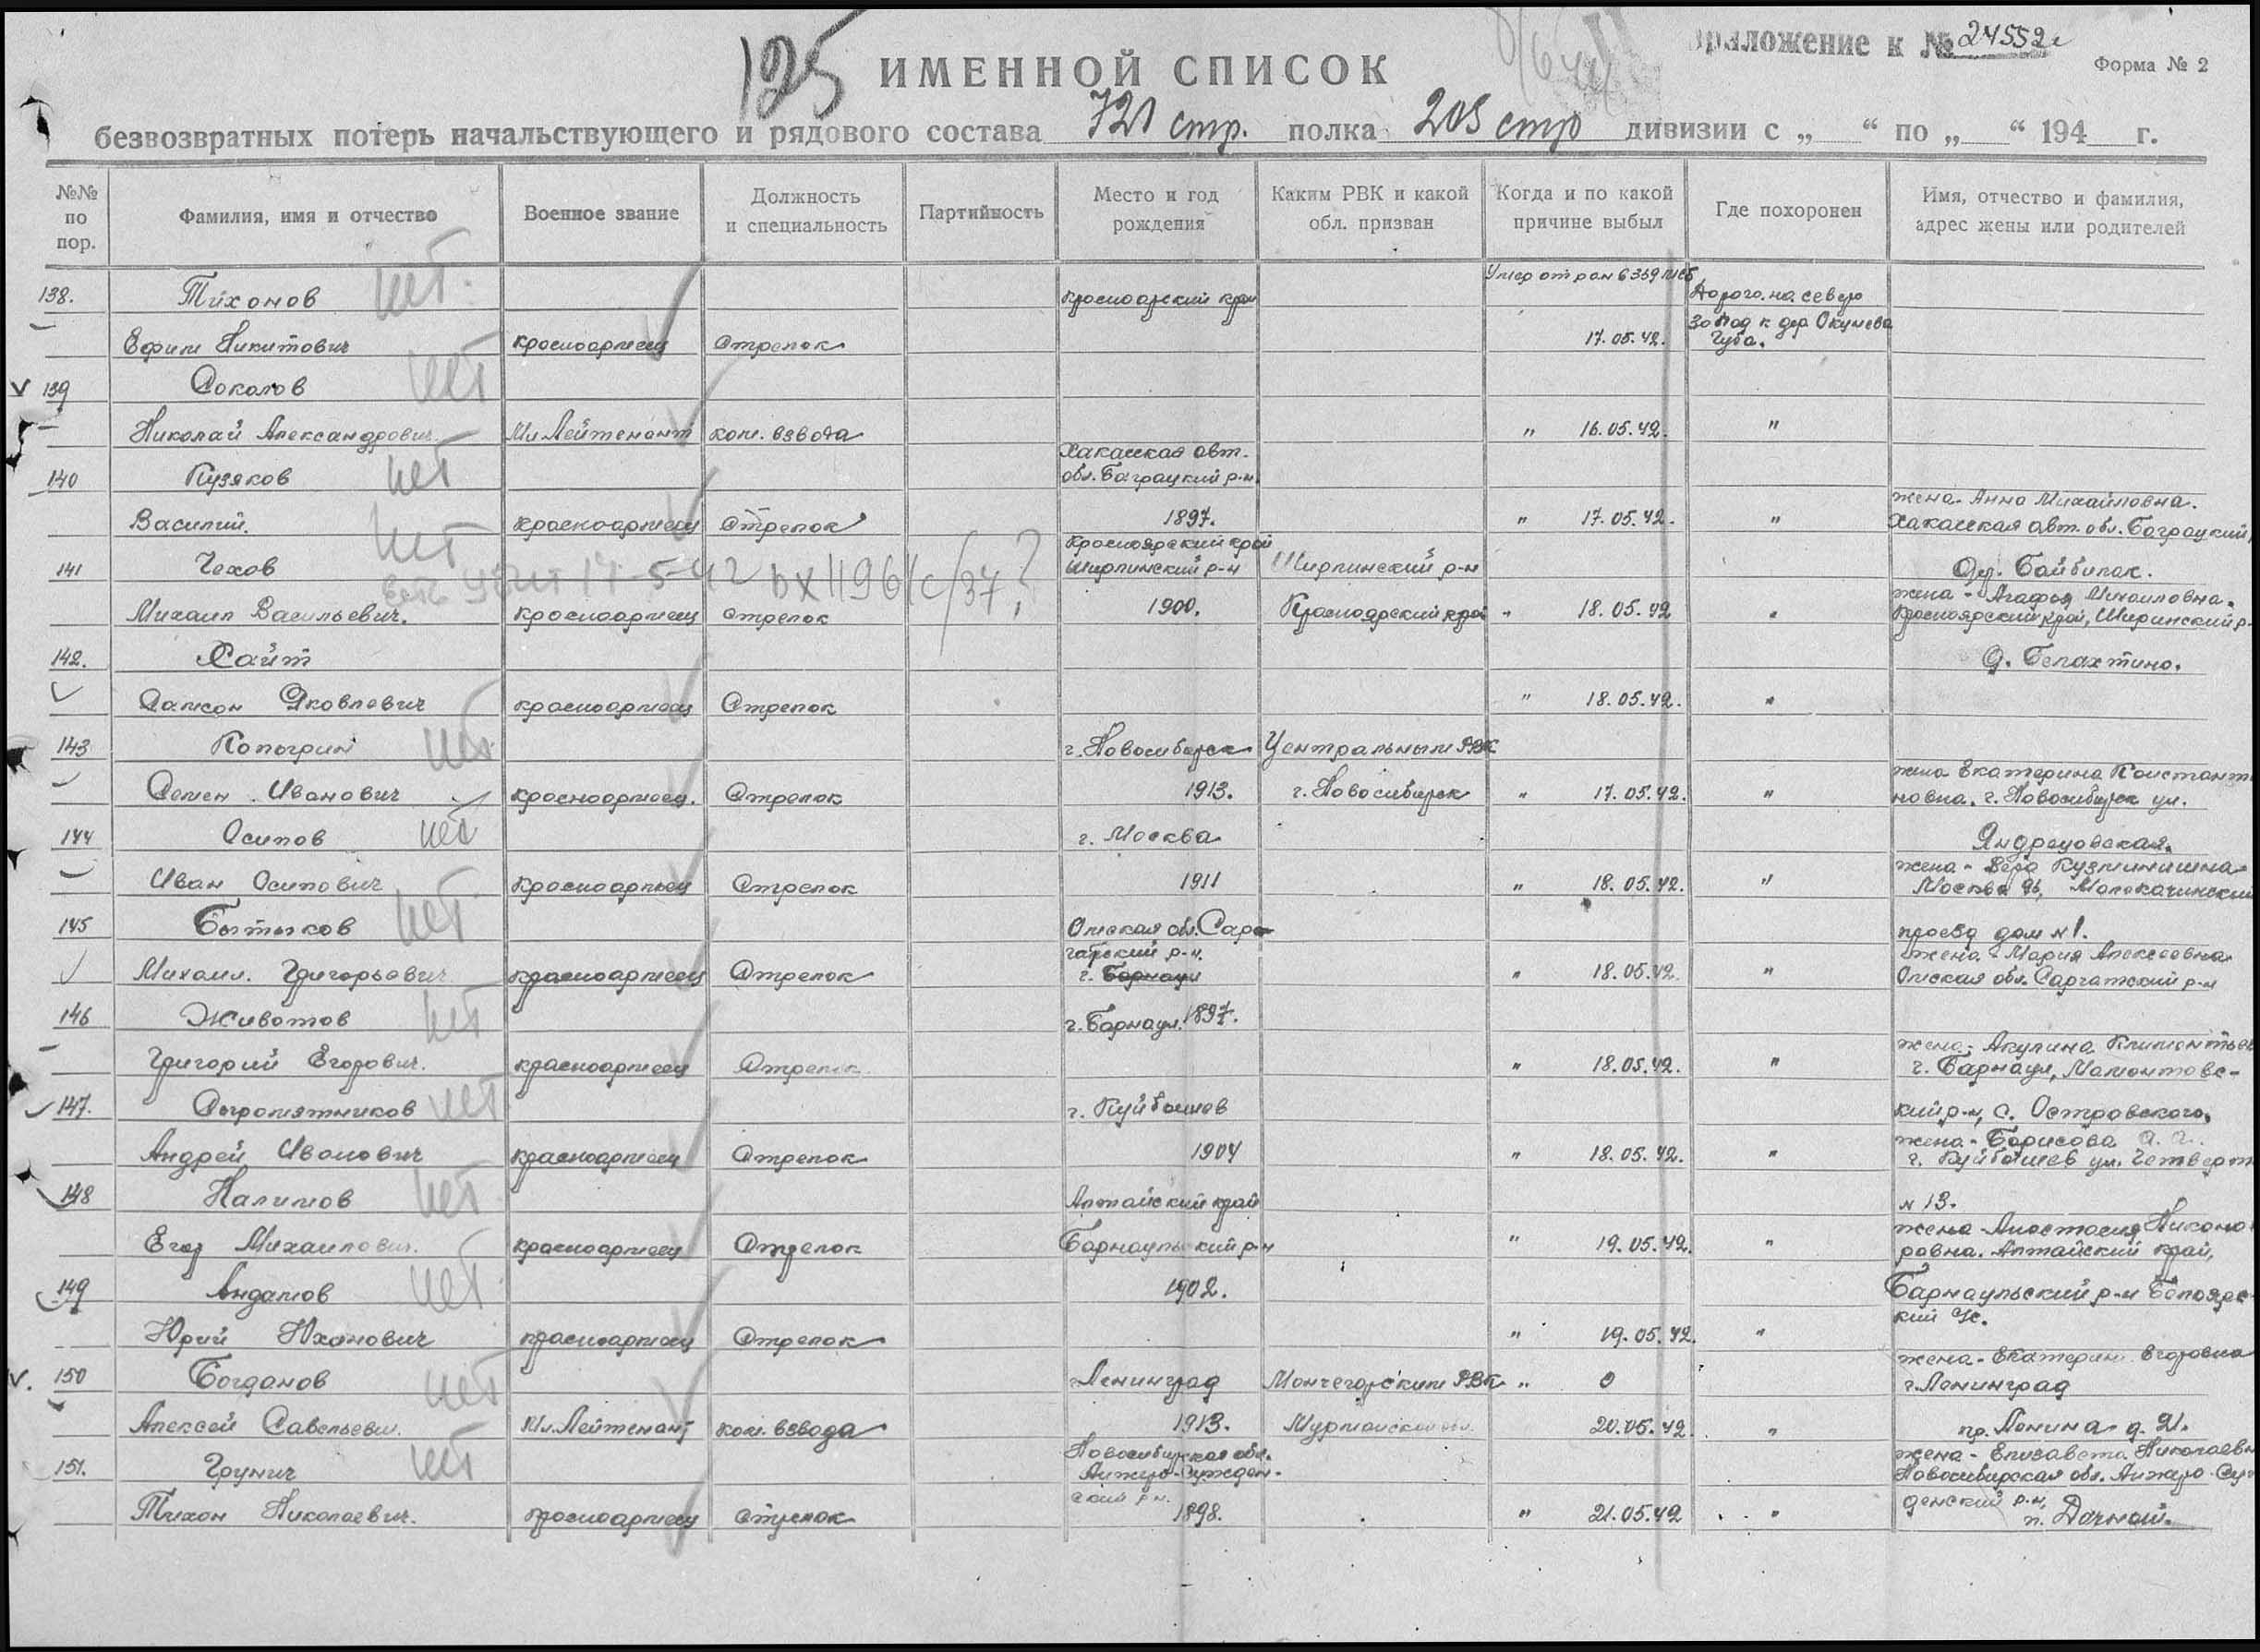 125
ИМЕННОЙ СПИСОК
Приложение к № 24552с
Форма № 2
безвозвратных потерь начальствующего и рядового состава 721 стр. полка 205 стр дивизии с „ “ по „ “ 194 г.
№№ по пор.
Фамилия, имя и отчество
Военное звание
Должность и специальность
Партийность
Место и год рождения
Каким РВК и какой обл. призван
Когда и по какой причине выбыл
Где похоронен
Имя, отчество и фамилия, адрес жены или родителей
138. Тихонов нет. Красноарский край Умер от ран в 369 Дорога на северо
Ефим Никитович красноармеец Стрелок 17.05.42. запад к дер Окунева Губа.
139 Соколов нет
Николай Александрович Мл Лейтенант ком. взвода " 16.05.42. "
140 Кузяков нет Хакасская авт. обл. Баградский р-н
Василий. красноармеец Стрелок 1897. " 17.05.42. " жена. Анна Михайловна. Хакасская авт. обл. Боградский
141 Чехов нет Красноярский край Ширлинский р-н Ширлинский р-н
17-5-42 вх 11961с/37 ?
Михаил Васильевич. красноармеец стрелок 1900. Красноярский край " 18.05.42 " жена - Агафья Михаиловна. Красноярский край, Ширинский р-
142. Сайт д. Белахтино.
Самсон Яковлевич красноармеец Стрелок " 18.05.42. "
143 Копыгрин нет г. Новосибирск Центральным РВК
Семен Иванович красноармеец. Стрелок 1913. г. Новосибирск " 17.05.42. " жена Екатерина Констант новна. г. Новосибирск ул.
144 Осипов нет г. Москва
Иван Осипович красноармеец Стрелок 1911 " 18.05.42. " жена - Вера Кузминишна Москва
145 Бытыков нет Омская обл. Сар- проезд дом №1.
гатский р-н.
Михаил. Григорьевич красноармеец Стрелок г. Барнаул " 18.05.42. " жена - Мария Алексеевна Омская обл. Саргатский р-н
146 Животов нет г. Барнаул. 1897.
Григорий Егорович. красноармеец Стрелок " 18.05.42. " жена - Акулина Климентьев г. Барнаул, Мамонтовс-
147. Сыромятников нет г. Куйбышев кий р-н, с. Островского.
Андрей Иванович красноармеец Стрелок 1904 " 18.05.42. " жена - Борисова А. г. Куйбышев ул. Четверт
148 Налимов нет Алтайский край № 13.
Егор Михаилович. красноармеец Стрелок Барнаульский р-н " 19.05.42. " жена Анастасия Никано ровна. Алтайский край,
149 Андамов нет 1902. Барнаульский р-н Белоярс- кий
Юрий Юханович красноармеец Стрелок " 19.05.42. "
150 Богданов нет г Ленинград Мончегорским РВК " жена - Екатерин Егоровна г. Ленинград
Алексей Савельевич. Мл. Лейтенант ком. взвода 1913. Мурманской обл. 20.05.42 " пр. Ленина д. 21.
151. Грунич нет Новосибирская обл. Анжеро-Сужден- ский р-н. жена - Елизавета Николаевн Новосибирская обл. Анжеро-Суж
Тихон Николаевич. красноармеец стрелок 1898. " 21.05.42 " денский р-н, п. Дачный.